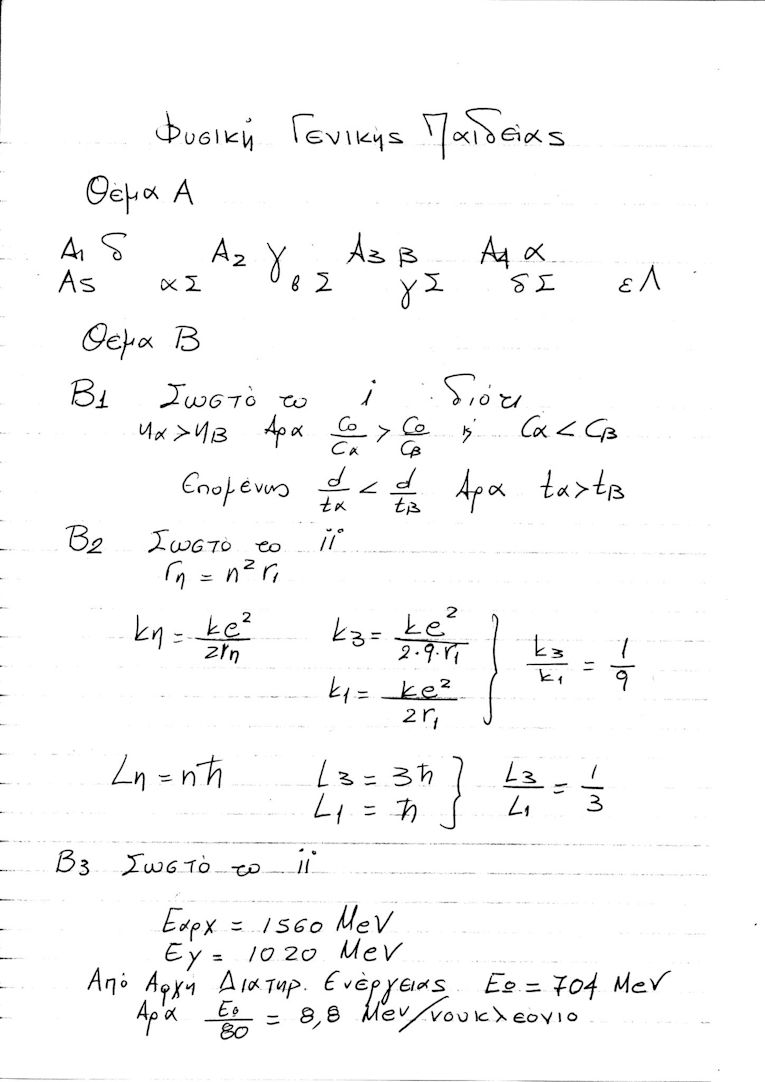 Φυσική Γενικής Παιδείας
Θέμα Α
Α1 δ Α2 γ Α3 β Α4 α
Α5 αΣ βΣ γΣ δΣ εΛ
Θέμα Β
Β1 Σωστό το i διότι
ηα > ηβ Άρα Co/Cα > Co/Cβ ή Cα < Cβ
Επομένως d/tα < d/tβ Άρα tα > tβ
Β2 Σωστό το ii
rη = n² r₁
kη = ke²/2rη k3 = ke²/2·9·r₁ } k3/k1 = 1/9
k1 = ke²/2r₁
Lη = nħ L3 = 3ħ } L3/L1 = 1/3
L1 = ħ
Β3 Σωστό το ii
Εαρχ = 1560 MeV
Εγ = 1020 MeV
Από Αρχή Διατηρ. Ενέργειας Εω = 704 MeV
Άρα Εω/80 = 8,8 MeV/νουκλεόνιο